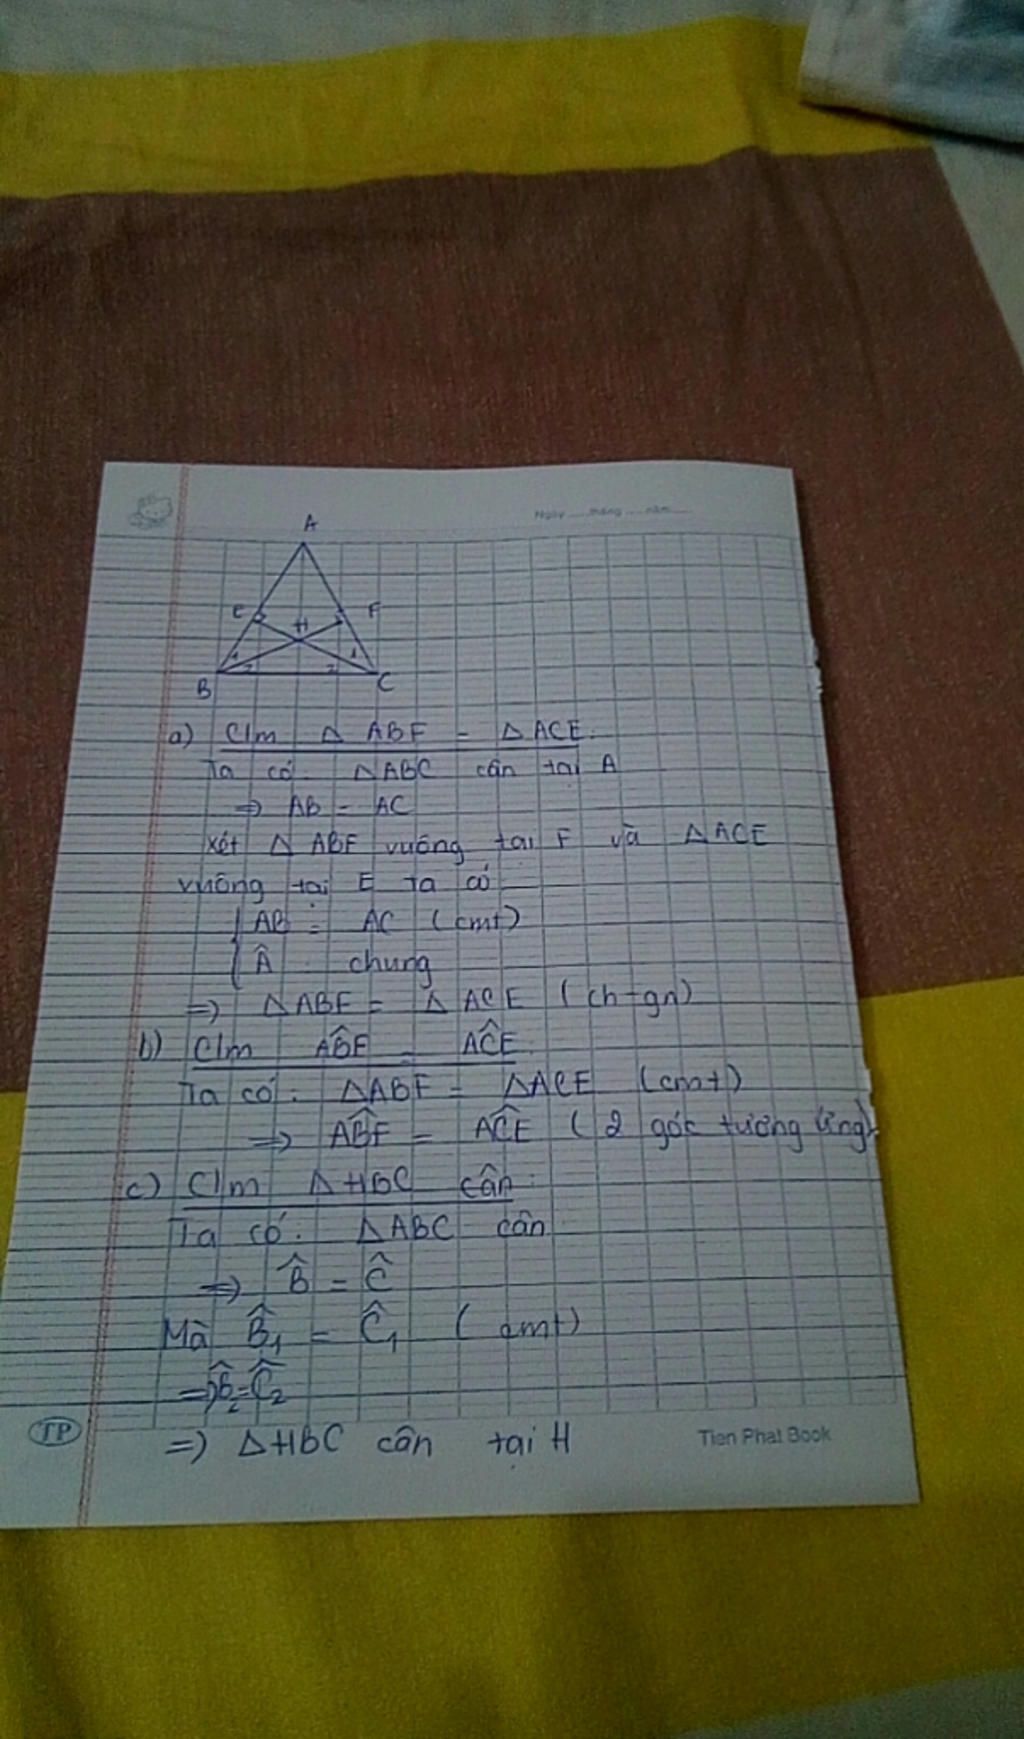 Ngày ..... tháng ..... năm .....
A
E
F
H
1
1
2
2
B
C
a) C/m △ ABF = △ ACE.
Ta có: △ABC cân tại A
=> AB = AC
Xét △ ABF vuông tại F và △ACE
vuông tại E ta có:
{ AB = AC (cmt)
{ Â chung
=> △ABF = △ ACE (ch-gn)
b) C/m AB̂F = AĈE.
Ta có: △ABF = △ACE (cmt)
=> AB̂F = AĈE (2 góc tương ứng)
c) C/m △HBC cân:
Ta có: △ABC cân
=> B̂ = Ĉ
Mà B̂₁ = Ĉ₁ (cmt)
=> B̂₂ = Ĉ₂
=> △HBC cân tại H
TP
Tien Phat Book